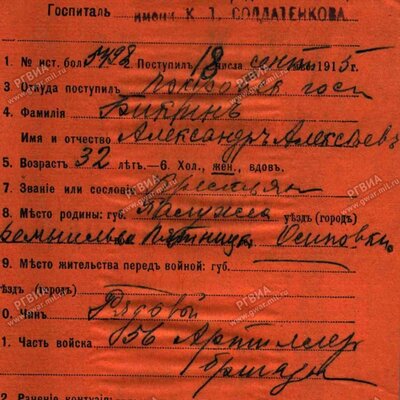 Госпиталь имени К. Т. СОЛДАТЕНКОВА
1. № ист. бол. 5498 2. Поступил 18 числа сент. 1915 г.
3. Откуда поступил госп
4. Фамилія Бикринъ
Имя и отчество Александръ Алексѣев
5. Возраст 32 лѣтъ.—6. Хол., жен., вдов.
7. Званіе или сословіе Крестьян
8. Мѣсто родины: губ. Калужск уѣздъ (городъ)
Осиповки
9. Мѣсто жительства передъ войной: губ.
ѣздъ (городъ)
0. Чинъ Рядовой
1. Часть войска 56 Артиллер
бригады
2. Раненіе
РГВИА
www.gwar.mil.ru